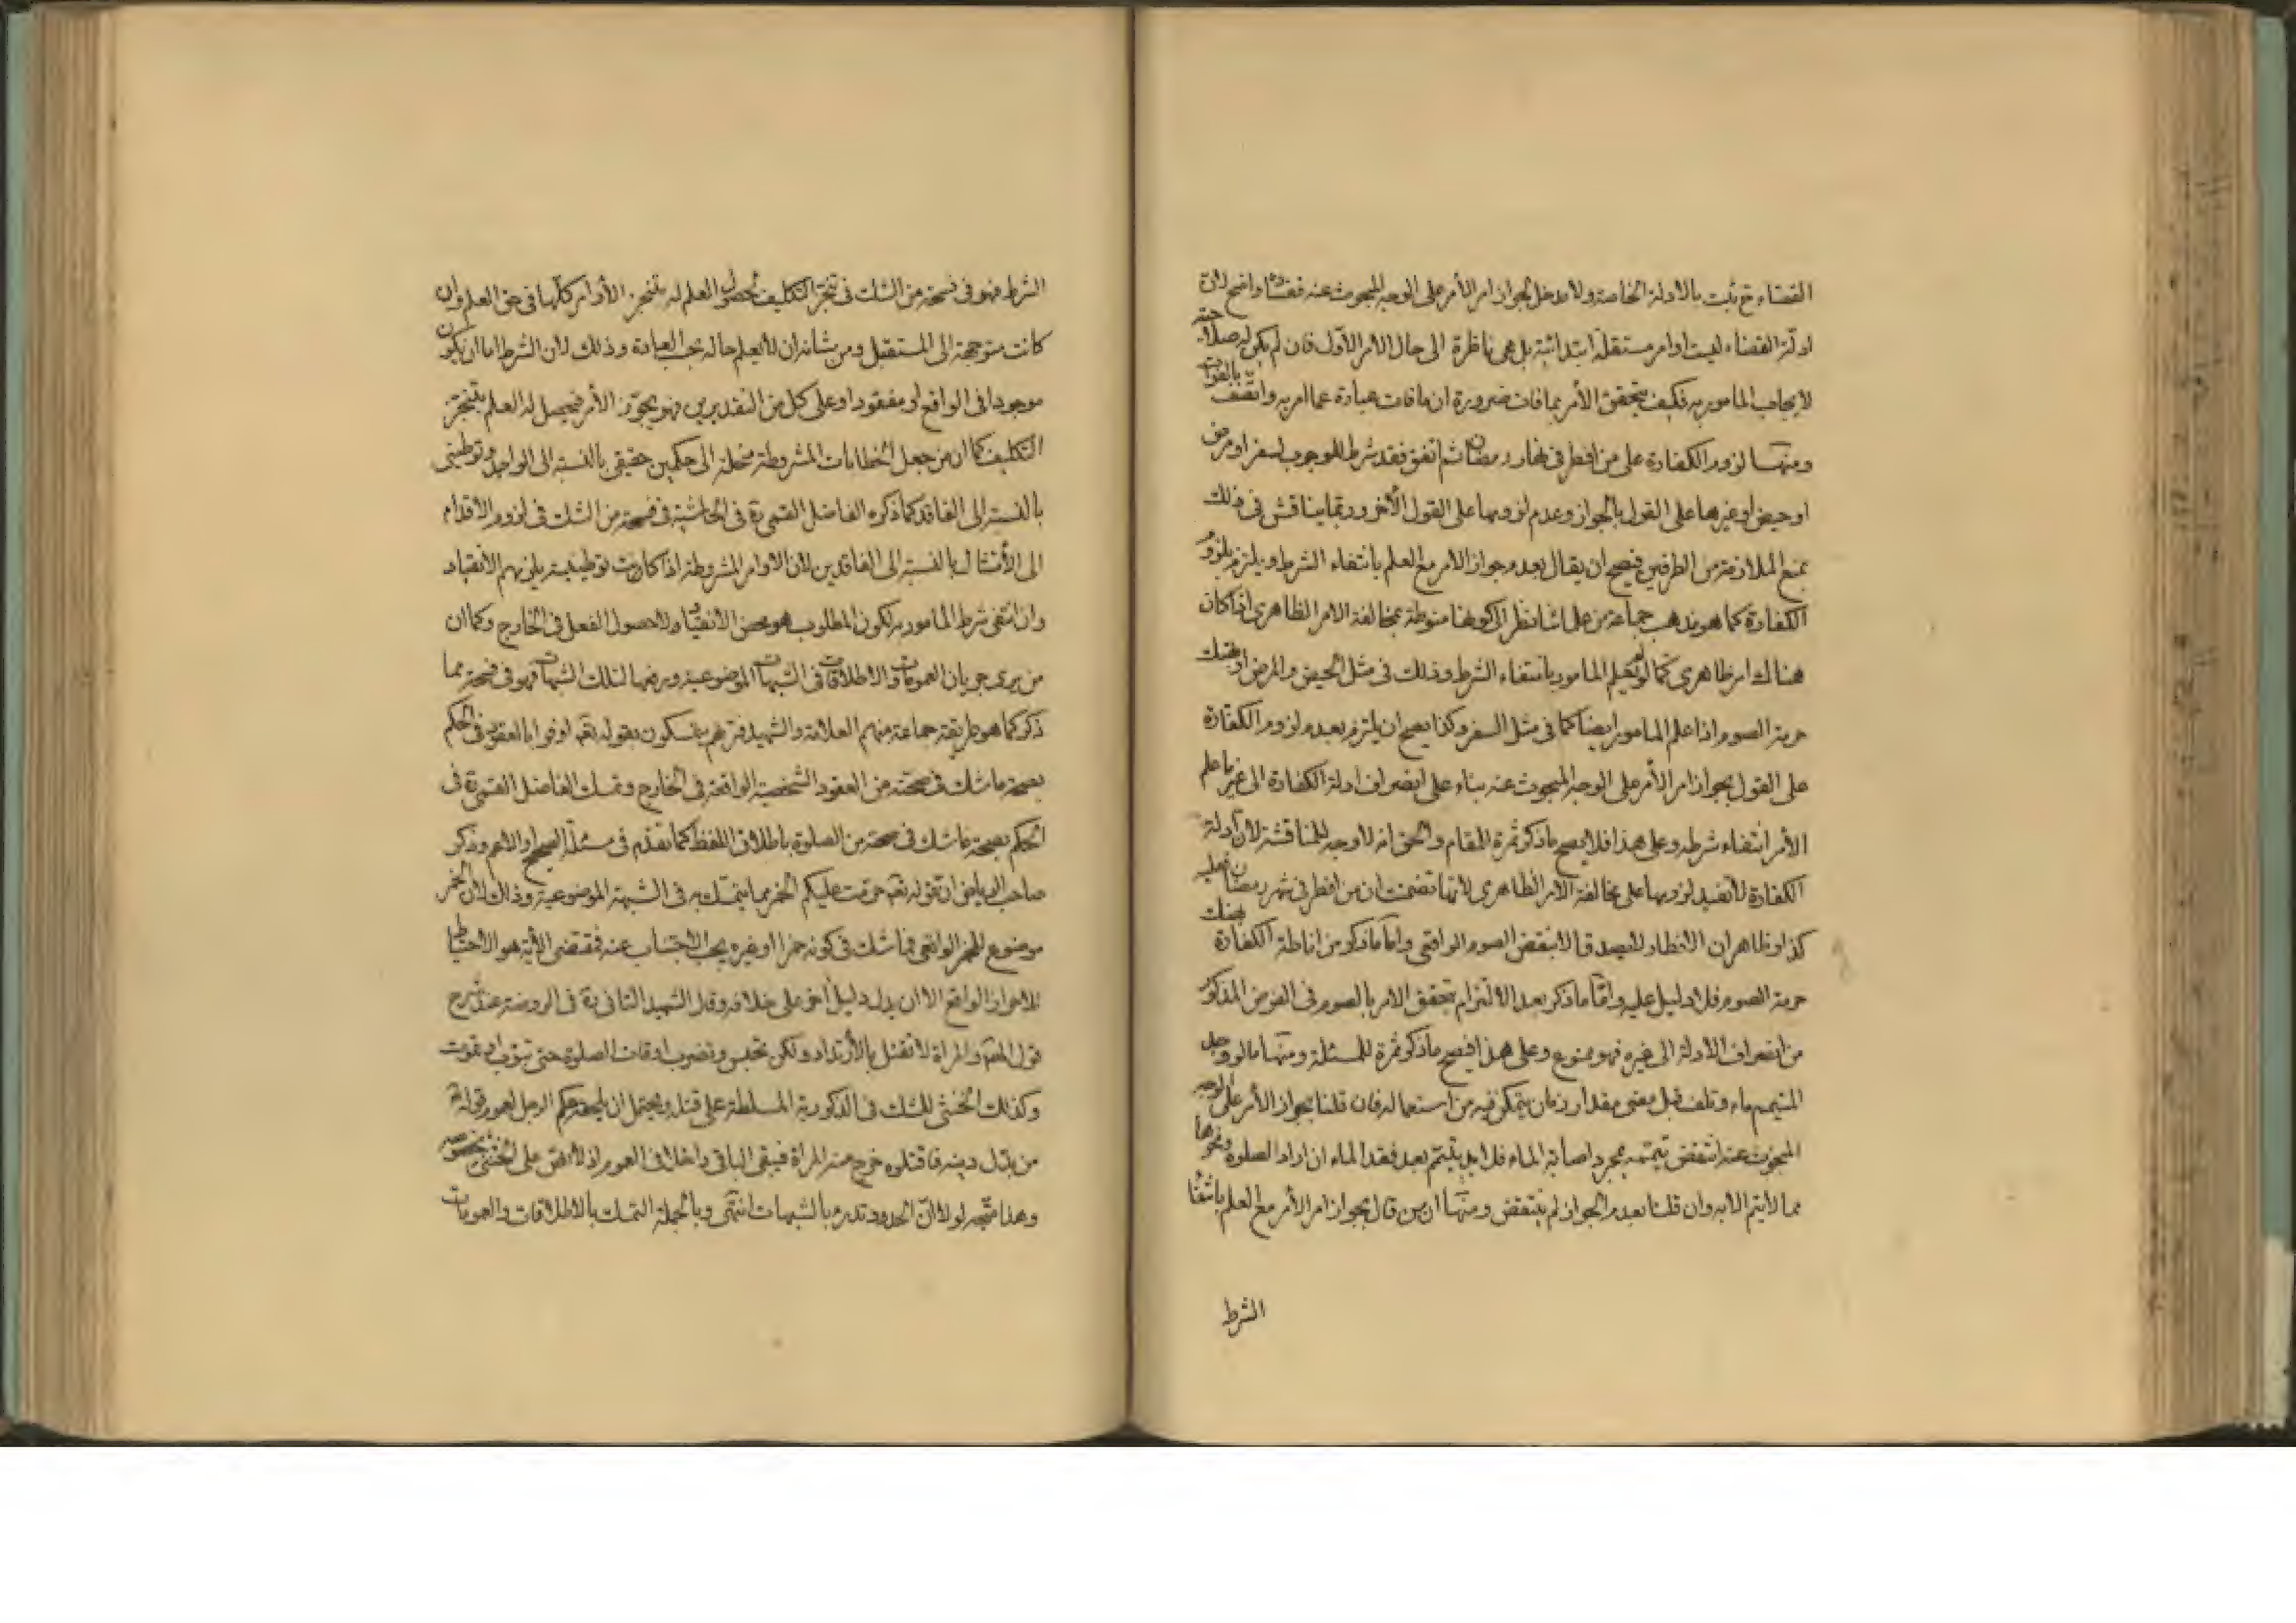 القضاء ح ثبت بالادلة الخاصة ولا مدخل لجواز امر الآمر على الوجه المبحوث عنه ففساده واضح لان
ادلة القضاء ليست اوامر مستقلة ابتدائية بل هى ناظرة الى حال الامر الاول فان لم يكن له صلاحية
لايجاب المامور به فكيف يتحقق الأمر بما فات ضرورة ان ما فات عبارة عما امر به واتصف بالفوات
ومنها لزوم الكفارة على من افطر فى نهار رمضان ثم اتفق فقد شرط للوجوب لسفر او مرض
او حيض او غيرها على القول بالجواز وعدم لزومها على القول الآخر وربما يناقش فى ذلك
بمنع الملازمة من الطرفين فيصح ان يقال بعدم جواز الامر مع العلم بانتفاء الشرط ويلتزم بلزوم
الكفارة كما هو مذهب جماعة من علمائنا نظرا الى كونها منوطة بمخالفة الامر الظاهرى اذا كان
هناك امر ظاهرى كما لو لم يعلم المامور بانتفاء الشرط وذلك فى مثل الحيض والمرض او بهتك
حرمة الصوم اذا علم المامور ايضا كما فى مثل السفر وكذا يصح ان يلتزم بعدم لزوم الكفارة
على القول بجواز امر الآمر على الوجه المبحوث عنه بناء على انصراف ادلة الكفارة الى غير ما علم
الأمر انتفاء شرطه وعلى هذا فلا يصح ما ذكر ثمرة للمقام والحق انه لا وجه للمناقشة لأن ادلة
الكفارة لا تفيد لزومها على مخالفة الامر الظاهرى لأنها تضمنت ان من افطر فى شهر رمضان فعليه
كذا وظاهر ان الافطار لا يصدق الا بنقض الصوم الواقعى واما ما ذكر من اناطة الكفارة بهتك
حرمة الصوم فلا دليل عليه واما ما ذكر بعد الالتزام بتحقق الامر بالصوم فى الفرض المذكور
من انصراف الأدلة الى غيره فهو ممنوع وعلى هذا فيصح ما ذكر ثمرة للمسئلة ومنها ما لو وجد
المتيمم ماء وتلف قبل مضى مقدار زمان يتمكن فيه من استعماله فان قلنا بجواز الأمر على الوجه
المبحوث عنه انتقض تيممه بمجرد اصابة الماء فلا بد بتيمم بعد فقد الماء ان اراد الصلوة ونحوها
مما لا يتم الا به وان قلنا بعدم الجواز لم ينتقض ومنها ان من قال بجواز امر الأمر مع العلم بانتفاء
الشرط
الشرط فهو فى فسحة من الشك فى تنجز التكليف لحصول العلم له بتنجز الأوامر كلها فى حق العلم وان
كانت متوجهة الى المستقبل ومن شانه ان لا يعلم حاله بحسب العبادة وذلك لان الشرط اما ان يكون
موجودا فى الواقع او مفقودا وعلى كل من التقديرين فهو يجوّز الأمر فيحصل له العلم بتنجز
التكليف كما ان من جعل الخطابات المشروطة منحلة الى حكمين حقيقى بالنسبة الى الواجد وتوطينى
بالنسبة الى الفاقد كما ذكره الفاضل القمى ره فى الحاشية فى فسحة من الشك فى لزوم الاقدام
الى الأمتثال بالنسبة الى الفاقدين لان الاوامر المشروطة اذا كانت توطينية يلزمهم الانقياد
وان انتفى شرط المامور به لكون المطلوب هو محض الأنقياد ولا حصول الفعل فى الخارج وكما ان
من يرى جريان العمومات والاطلاقات فى الشبهات الموضوعية ورفعها لتلك الشبهات فهو فى فسحة مما
ذكر كما هو طريقة جماعة منهم العلامة والشهيد فتريهم يتمسكون بقوله تعه اوفوا بالعقود فى الحكم
بصحة ما شك فى صحته من العقود الشخصية الواقعة فى الخارج وتمسك الفاضل القمى ره فى
الحكم بصحة ما شك فى صحته من الصلوة باطلاق اللفظ كما تقدم فى مسئلة الصحيح والاعم وذكر
صاحب الرياض ان قوله تعه حرمت عليكم الخمر مما يتمسك به فى الشبهة الموضوعية وذلك لان الخمر
موضوع للخمر الواقعى فما شك فى كونه خمرا او غيره يجب الاجتناب عنه فمقتضى الآية هو الاحتياط
للاحراز الواقع الا ان يدل دليل آخر على خلافه وقال الشهيد الثانى ره فى الروضة عند شرح
قول المصة والمراة لا تقتل بالأرتداد ولكن تحبس وتضرب اوقات الصلوة حتى تتوب او تموت
وكذلك الخنثى للشك فى الذكورية المسلطة على قتله ويحتمل ان يلحقه حكم الرجل لعموم قوله ص
من بدل دينه فاقتلوه خرج منه المراة فيبقى الباقى داخلا فى العموم اذ لا نص على الخنثى بخصوصه
وهذا متجه لولا ان الحدود تدرء بالشبهات انتهى وبالجملة التمسك بالاطلاقات والعمومات